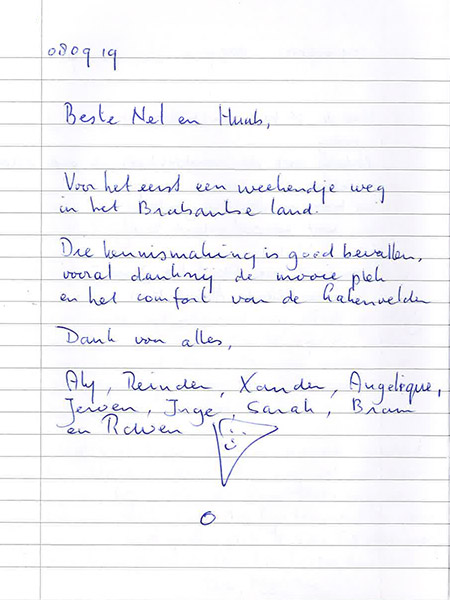 080919
Beste Nel en Huub,
Voor het eerst een weekendje weg
in het Brabantse land.
Die kennismaking is goed bevallen,
vooral dankzij de mooie plek
en het comfort van de Hakenvelden
Dank voor alles,
Aly, Reinder, Xander, Angelique,
Jeroen, Inge, Sarah, Bram
en Rowen